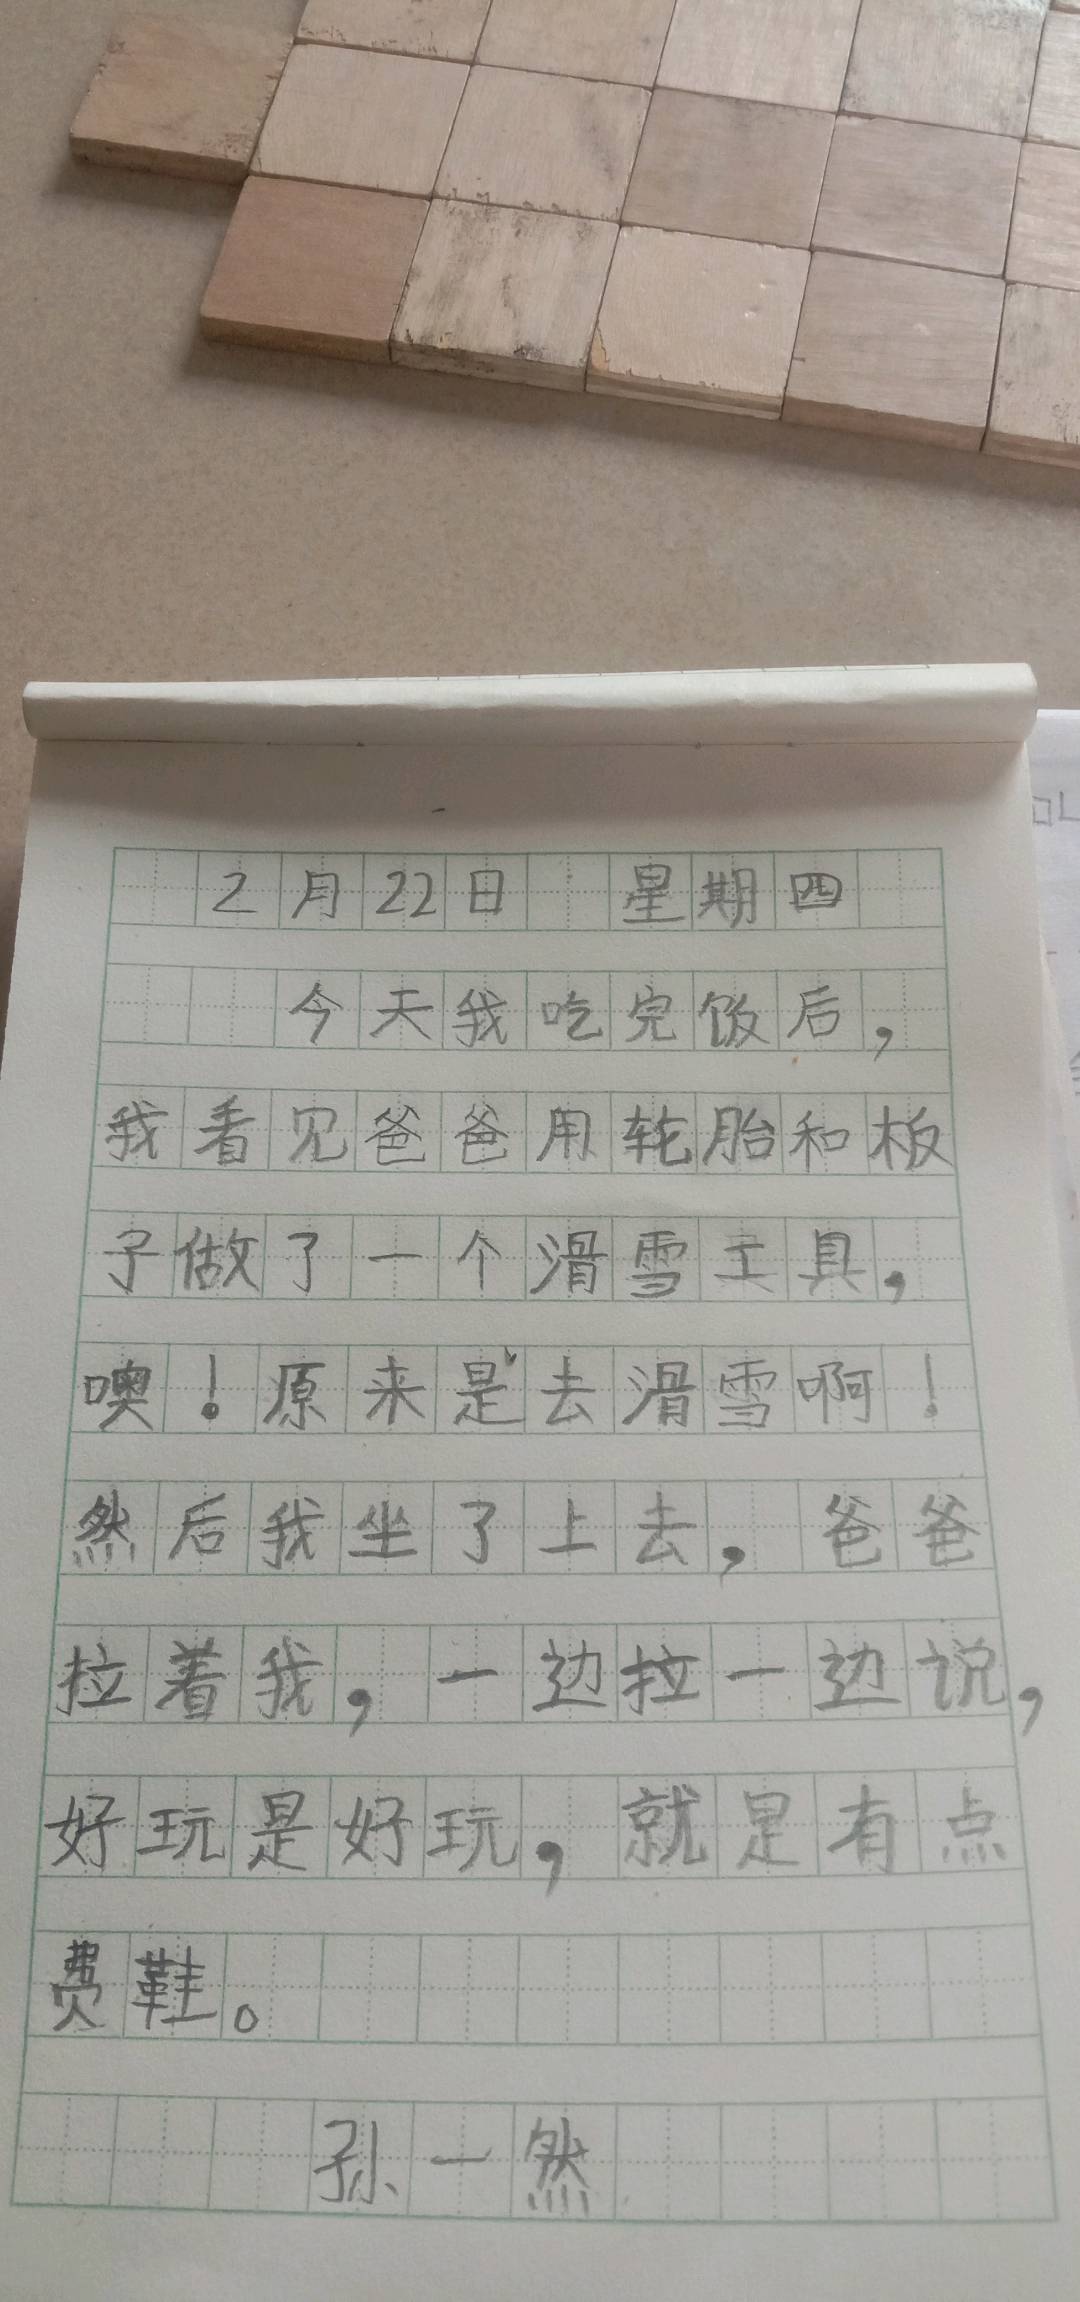 2月22日 星期四
今天我吃完饭后，
我看见爸爸用轮胎和板
子做了一个滑雪工具，
噢！原来是去滑雪啊！
然后我坐了上去，爸爸
拉着我，一边拉一边说，
好玩是好玩，就是有点
费鞋。
孙一然